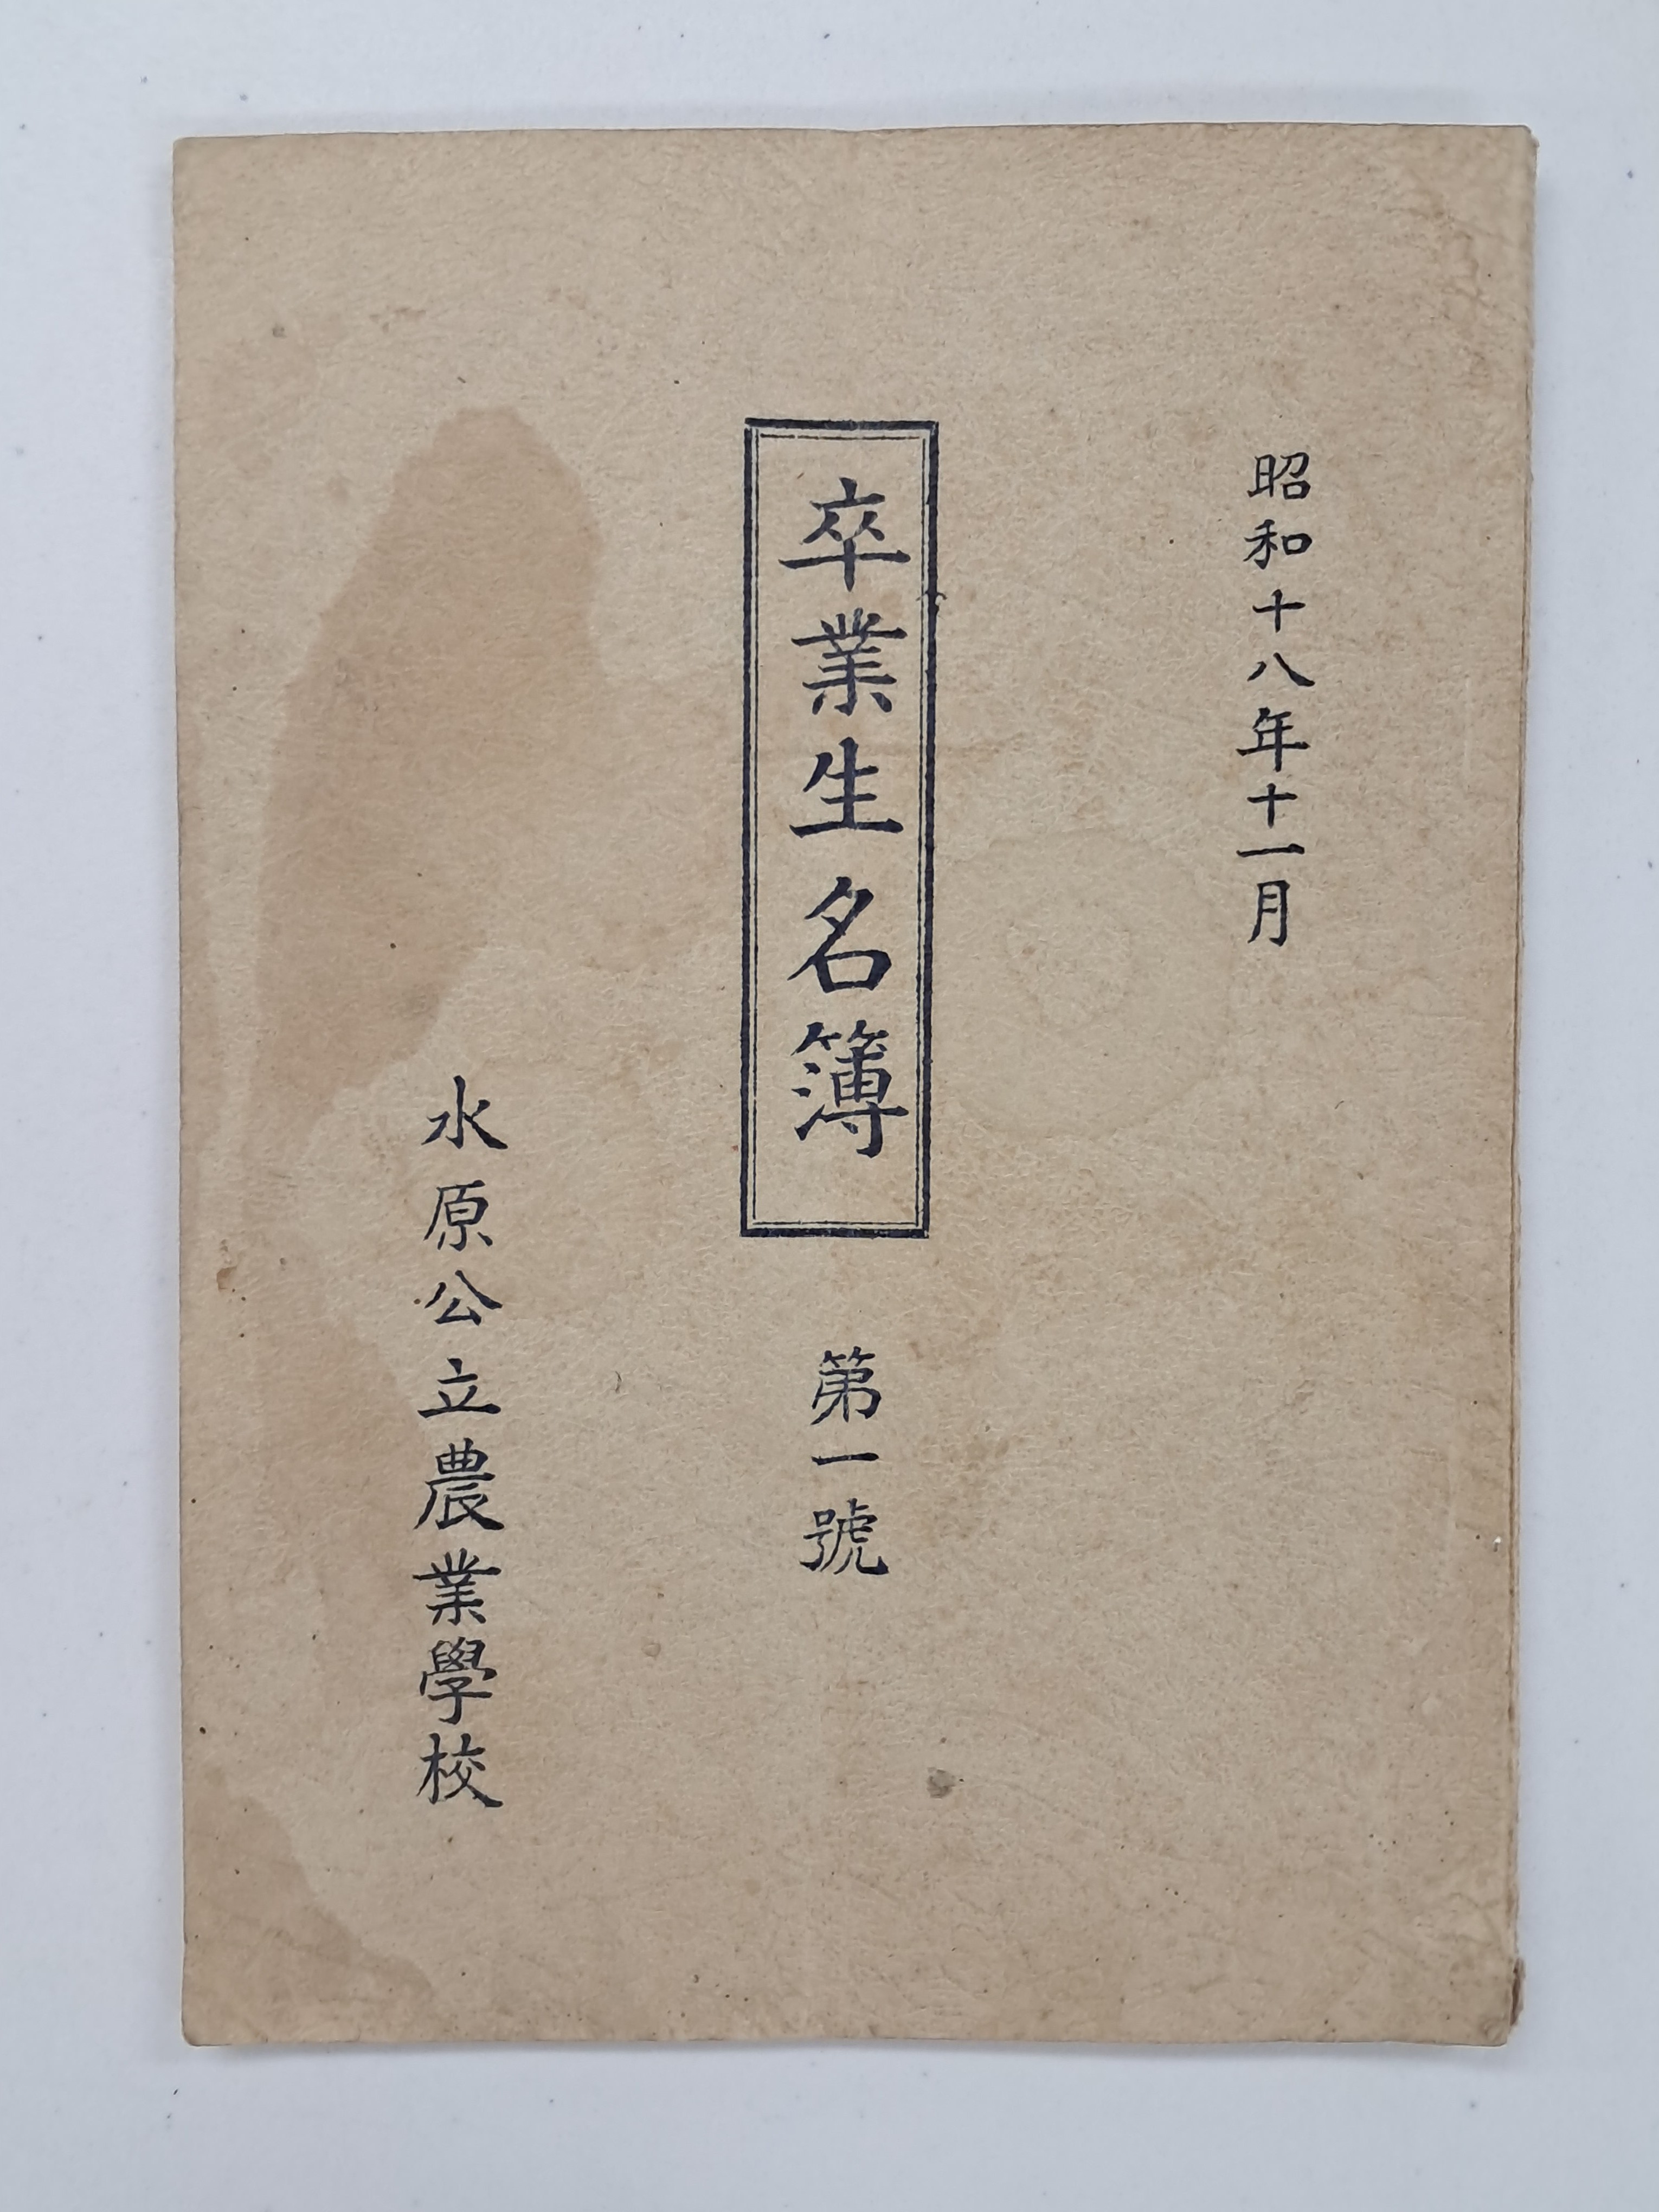 昭和十八年十一月
卒業生名簿
第一號
水原公立農業學校